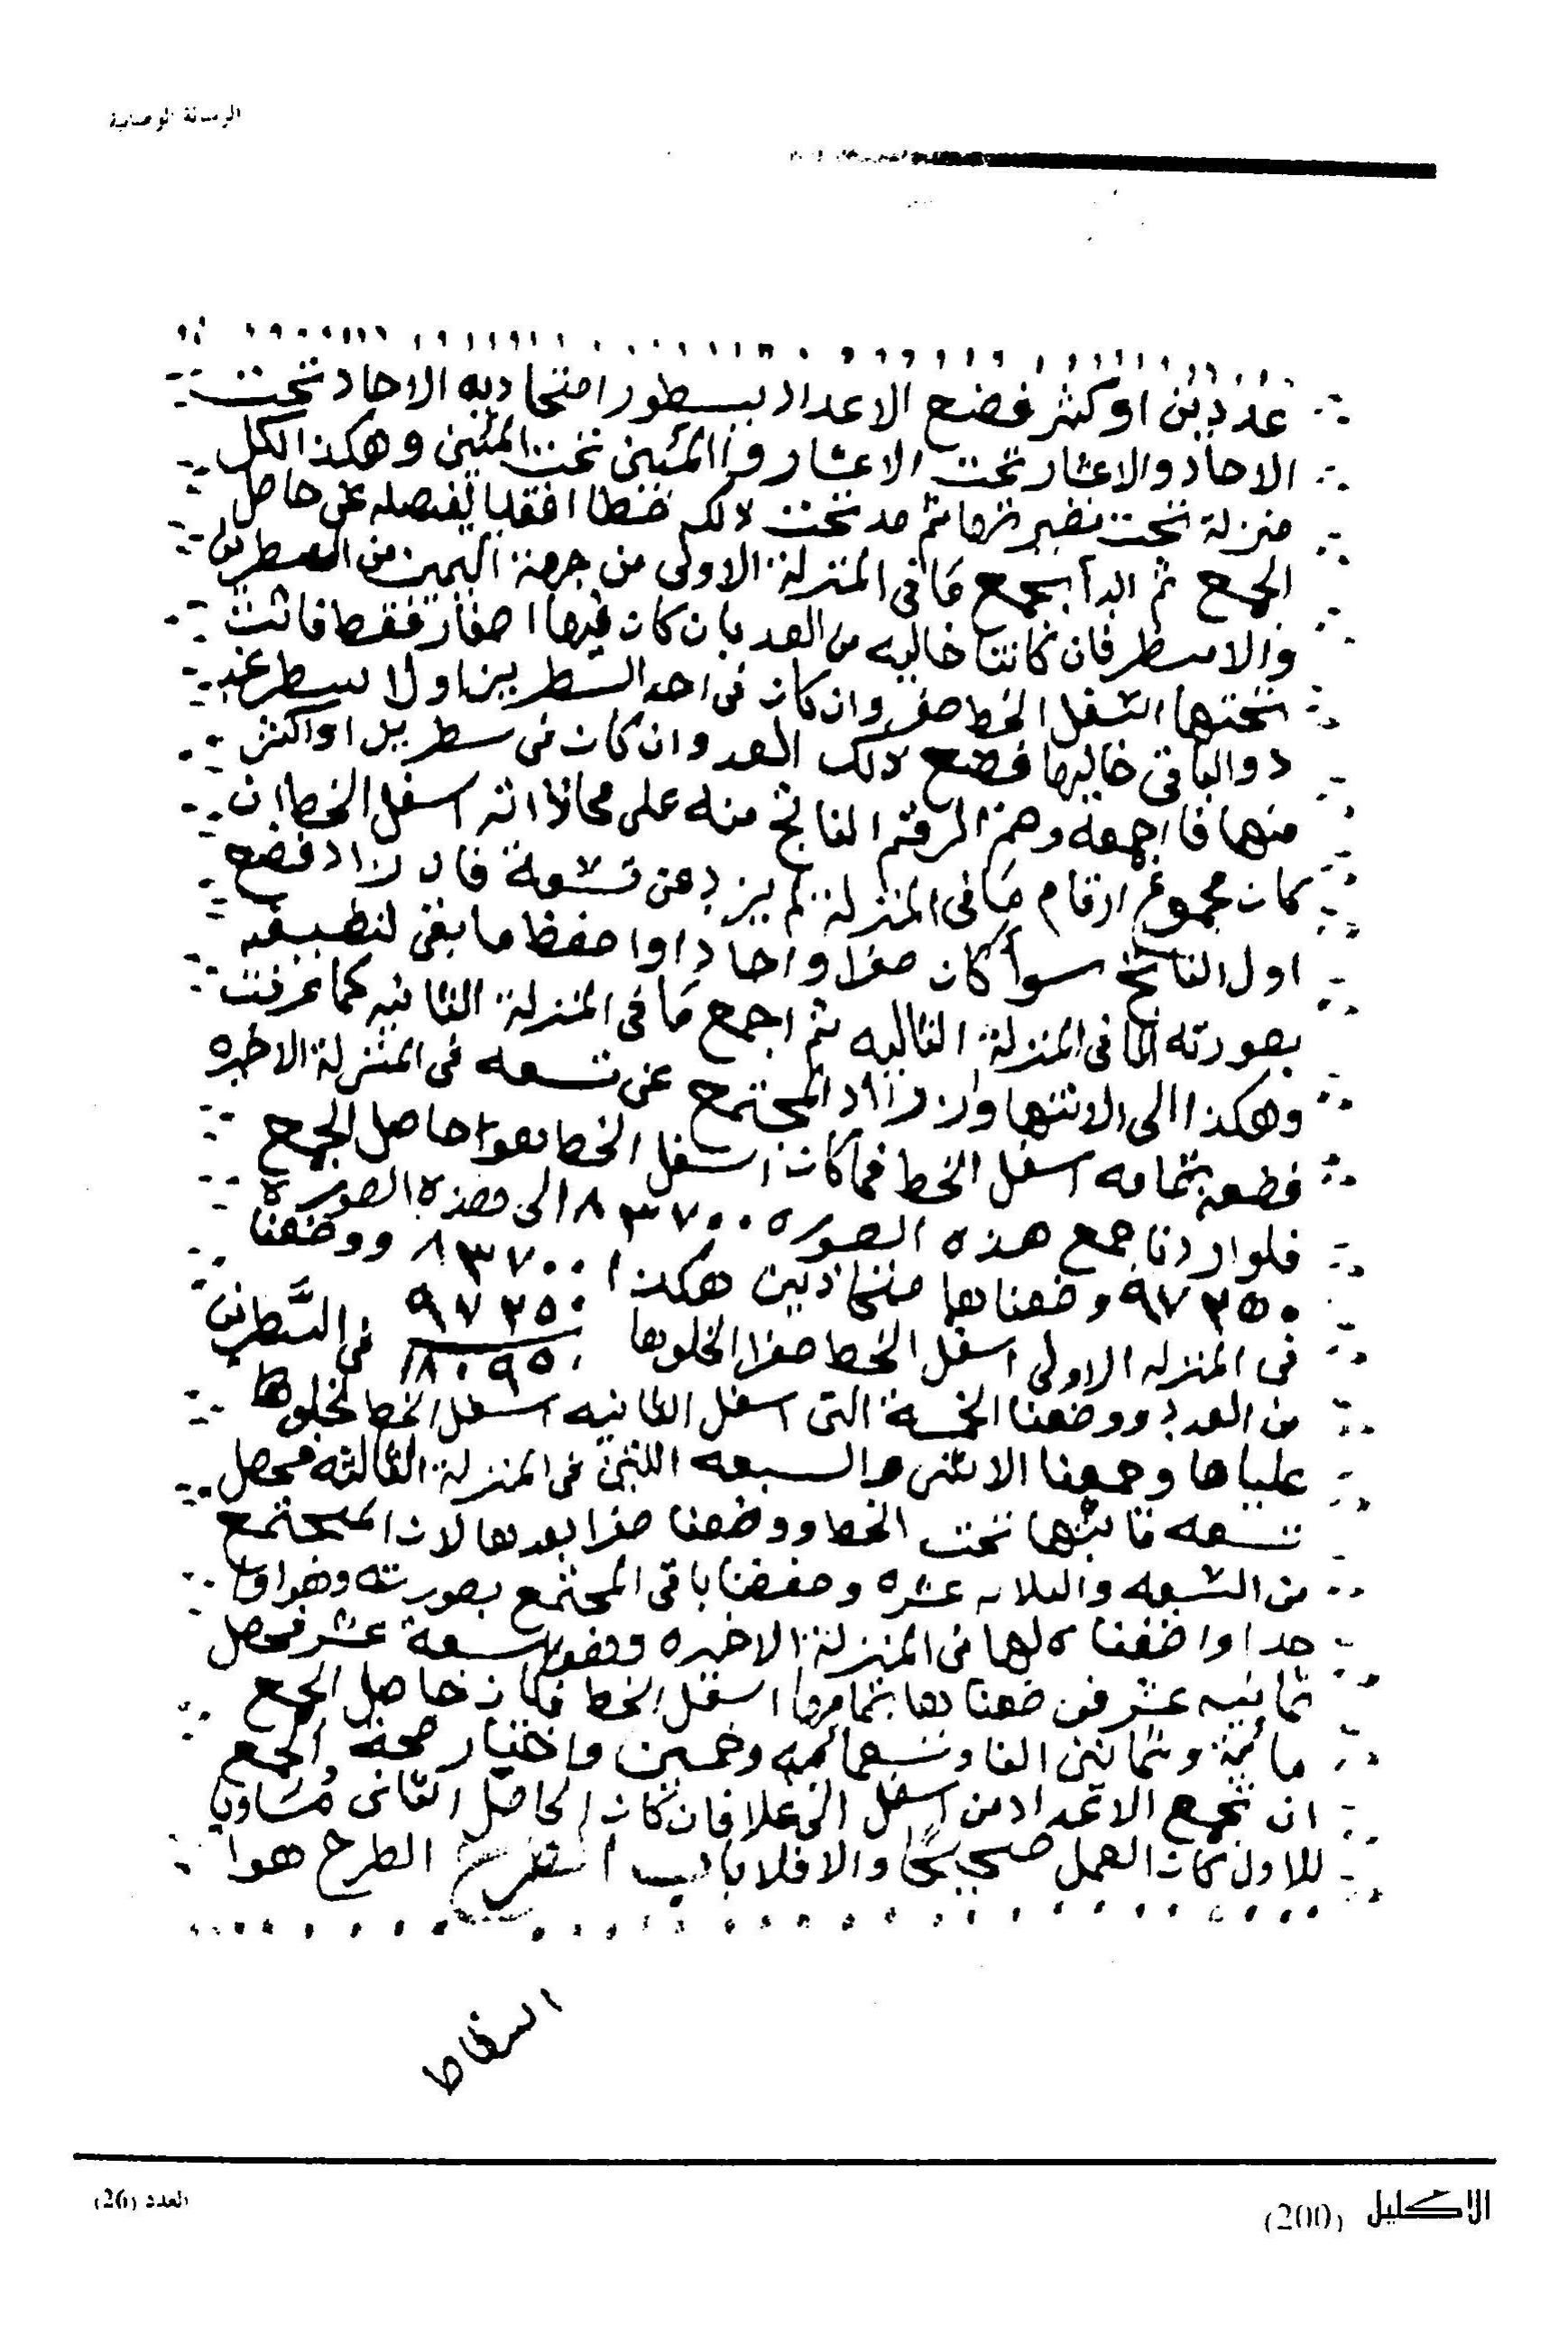 الرسالة
عددين او كثر فضع الاعداد بسطور امتحاديه الاحاد تحت
الاحاد والاعشار تحت الاعشار والمئين تحت المئين وهكذا لكل
منزلة تحت نضيرتها ثم مد تحت ذلك خطا افقيا يفصله عن حاصل
الجمع ثم ابدآ بجمع ما في المنزلة الاولى من جهة اليمين من السطرين
والاسطر فان كانتا خاليه من العدد بان كان فيها اصفار فقط فاثبت
تحتها اسفل الخط صفر وان كان في احد السطرين او لاسطر عد
دوالباقي خاليها فضع ذلك العدد وان كان في سطرين او اكثر
منهما فاجمعه وهم الرقم الناتج منه على محاذاته اسفل الخط ان
كان مجموع ارقام ما في المنزلة لم يزد عن تسعة فان زاد فضع
اول الناتج سوآ كان صفرا واحاد او احفظ ما بقي لتطبيقه
بصورته الى ما في المنزلة التاليه ثم اجمع ما في المنزلة الثانيه كما عرفت
وهكذا الى الانتها وان زاد المجتمع عن تسعه في المنزلة الاخيره
فضعه بتمامه اسفل الخط فما كان اسفل الخط فهو حاصل الجمع
فلو اردنا جمع هذه الصوره ٨٣٧٠٠ الى هذه الصوره
٩٧٢٥٠ وضعناهما متحاديين هكذا ٨٣٧٠٠ ووضعنا
٩٧٢٥٠
في المنزله الاولى اسفل الخط صفرا لخلوها ١٨٠٩٥٠ في السطرين
من العدد ووضعنا الخمسة التي اسفل الثانيه اسفل الخط لخلوها
علياها وجمعنا الاثنين والسبعه اللتين في المنزلة الثالثه فحصل
تسعه فاثبتها تحت الخط ووضعنا صفرا بعدها لان المجتمع
من السبعه والثلاثه عشره وحفضنا باقي المجتمع بصورته وهو واو
حدا واضفناه لها في المنزلة الاخيره وهو سبعة عشر فحصل
ثمانيه عشر فوضعناها بتمامها اسفل الخط فكان حاصل الجمع
مائة وثمانين الفا وتسعمائه وخمسين واختبار صحة الجمع
ان تجمع الاعداد من اسفل الى علا فان كان الحاصل الثاني مساويا
للاول كان العمل صحيحًا والا فلا باب الطرح الطرح هوا
اسقاط
الاكليل (200)
العدد (26)